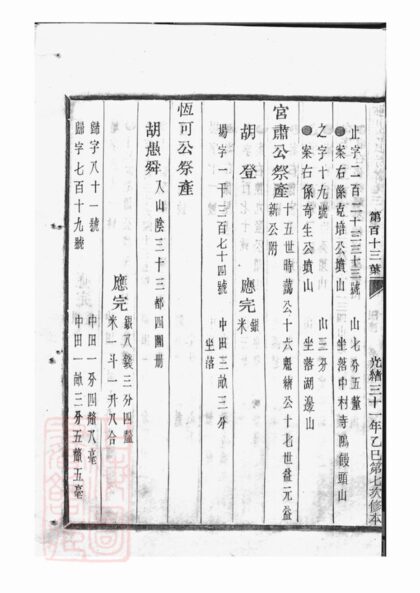 第百十三葉
光緒三十一年乙巳第七次修本
止字二百二十三三十三號 山七分五釐
案右係克培公墳山 坐落中村寺鴫饅頭山
之字十九號 山三分
案右係奇生公墳山 坐落湖邊山
官肅公祭產
十五世時萬公十六魁緒公十七世益元益
新公附
胡登 應完 銀 米
場字一千三百七十四號 中田三畝三分
坐落
恆可公祭產
胡愚舜 入山陰三十三都四圖册
應完 銀八錢三分四釐
米一斗一升八合
歸字八十一號 中田一分四釐八毫
歸字七百十九號 中田一畝三分五釐五毫